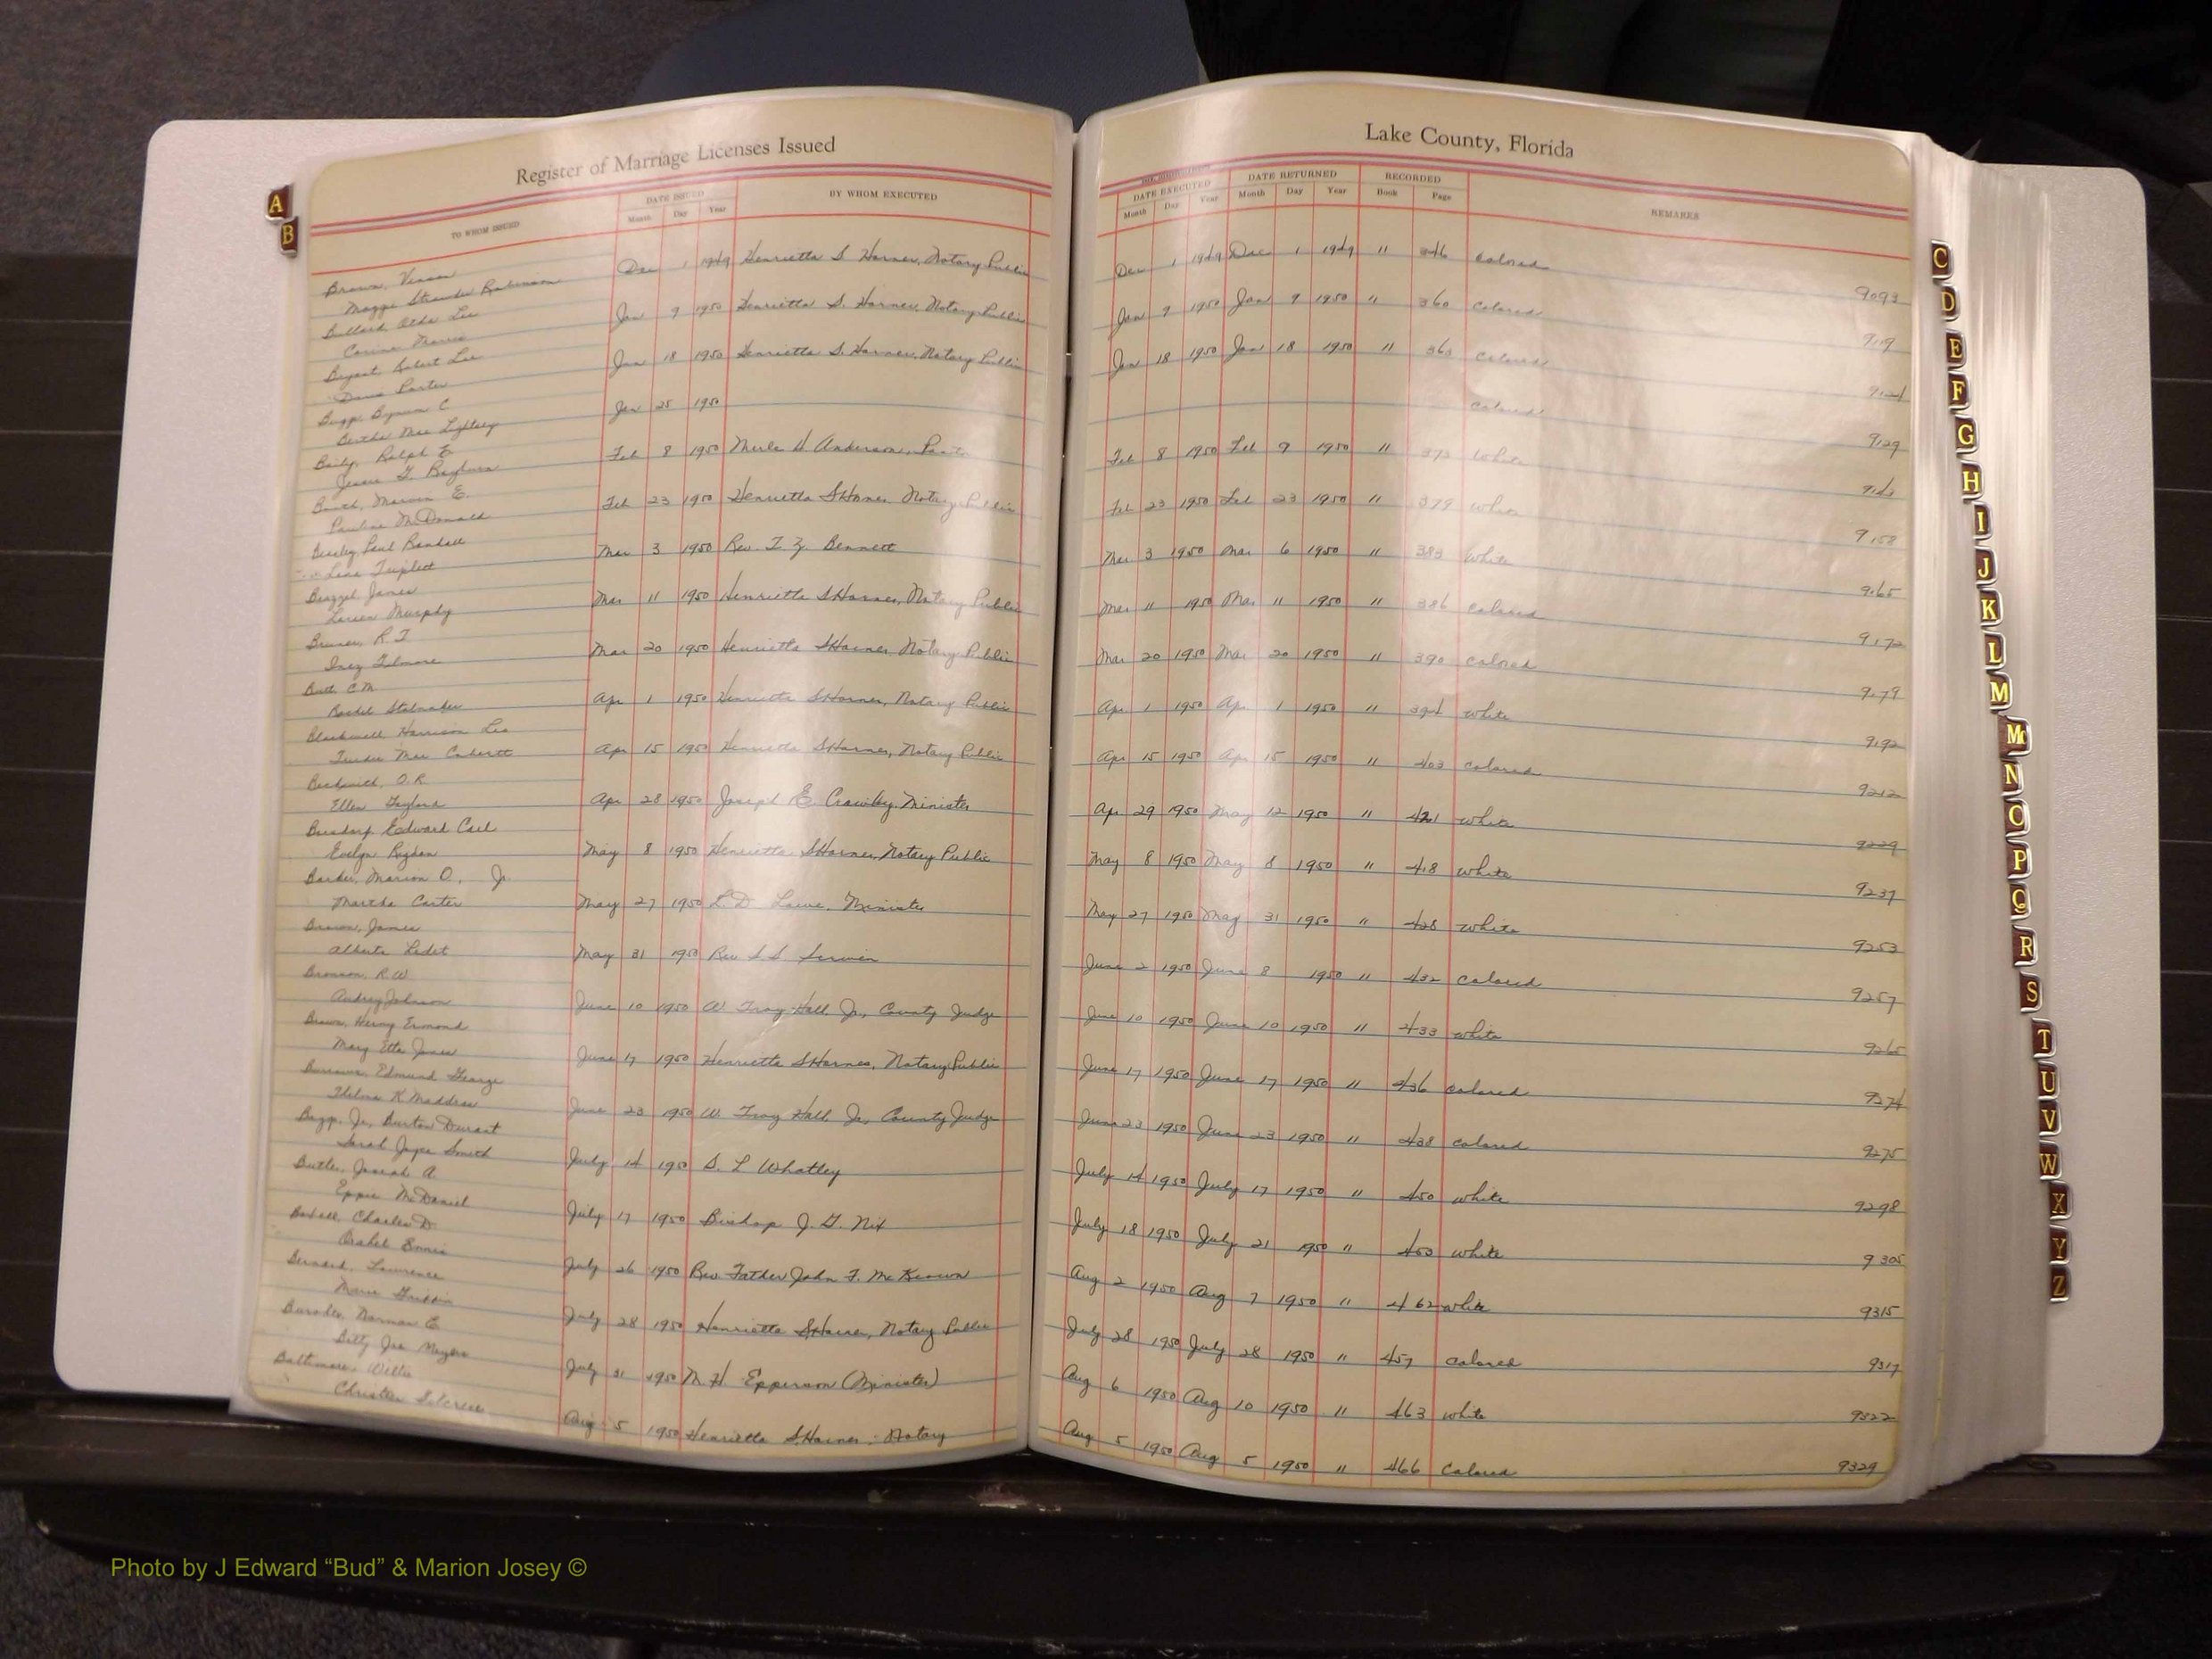 Register of Marriage Licenses Issued
Lake County, Florida
TO WHOM ISSUED DATE ISSUED BY WHOM EXECUTED
Month Day Year
DATE EXECUTED DATE RETURNED RECORDED REMARKS
Month Day Year Month Day Year Book Page
Brown,
Dec 1 1949 Henrietta S Harner, Notary Public Dec 1 1949 Dec 1 1949 " 346 Colored 9093
Bullard Lee
Corine
Jan 9 1950 Henrietta S. Harner, Notary Public Jan 9 1950 Jan 9 1950 " 360 Colored
Bryant, Robert Lee
Porter
Jan 18 1950 Henrietta S. Harner, Notary Public Jan 18 1950 Jan 18 1950 " Colored
Bertha Mae Lightsey
Jan 25 1950 Colored 9129
Baily, Ralph E.
Jessie
Feb 8 1950 Merle Anderson, Feb 8 1950 Feb 9 1950 " 373 White
Booth, Marvin E.
Pauline McDonald
Feb 23 1950 Henrietta S Harner Notary Public Feb 23 1950 Feb 23 1950 " 379 White 9158
Beasley, Paul Randall
Triplett
Mar 3 1950 Rev. Bennett Mar 3 1950 Mar 6 1950 " 383 White 9165
James
Murphy
Mar 11 1950 Henrietta S Harner, Notary Public Mar 11 1950 Mar 11 1950 " 386 Colored 9172
Inez
Mar 20 1950 Henrietta S Harner Notary Public Mar 20 1950 Mar 20 1950 " 390 Colored 9179
Butt C.M.
Apr 1 1950 Henrietta S Harner, Notary Public Apr 1 1950 Apr 1 1950 " 394 White 9192
Blackwell Harrison Lee
Mae
Apr 15 1950 Henrietta S Harner, Notary Public Apr 15 1950 Apr 15 1950 " 403 Colored 9212
O.R.
Ellen
Apr 28 1950 Joseph E. Crowley, Minister Apr 29 1950 May 12 1950 " 421 White 9229
Edward Carl
Evelyn Rigdon
May 8 1950 Henrietta S Harner, Notary Public May 8 1950 May 8 1950 " 418 White 9237
Barber, Marion O., Jr.
Martha Carter
May 27 1950 L.D. Minister May 27 1950 May 31 1950 " 428 White 9253
Brown, James
Alberta
May 31 1950 Rev June 2 1950 June 8 1950 " 432 Colored 9257
Bronson, R.W.
Audrey Johnson
June 10 1950 W. Troy Hall, Jr., County Judge June 10 1950 June 10 1950 " 433 White 9265
Brown, Henry
Mary Etta Jones
June 17 1950 Henrietta S Harner, Notary Public June 17 1950 June 17 1950 " 436 Colored 9274
Burrows, Edmund George
Thelma K Maddox
June 23 1950 W. Troy Hall, Jr., County Judge June 23 1950 June 23 1950 " 438 Colored 9275
Jr., Burton Durant
Sarah Joyce Smith
July 14 1950 S. L Whatley July 14 1950 July 17 1950 " 450 White 9298
Butler, Joseph A.
Eppie McDaniel
July 17 1950 Bishop J. G. Nix July 18 1950 July 21 1950 " 453 White 9305
Charles D.
Ennis
July 26 1950 Rev. Father John F. McKeown Aug 2 1950 Aug 7 1950 " 462 White 9315
Bernard, Lawrence
Marie
July 28 1950 Henrietta S Harner, Notary Public July 28 1950 July 28 1950 " 457 Colored 9317
Norman E
Betty Joe
July 31 1950 M. H. Epperson (Minister) Aug 6 1950 Aug 10 1950 " 463 White 9322
Baltimore, Willie
Aug 5 1950 Henrietta S. Harner, Notary Aug 5 1950 Aug 5 1950 " 466 Colored 9329
A
B
C
D
E
F
G
H
I
J
K
L
M
Mc
N
O
P
Q
R
S
T
U
V
W
X
Y
Z
Photo by J Edward “Bud” & Marion Josey ©